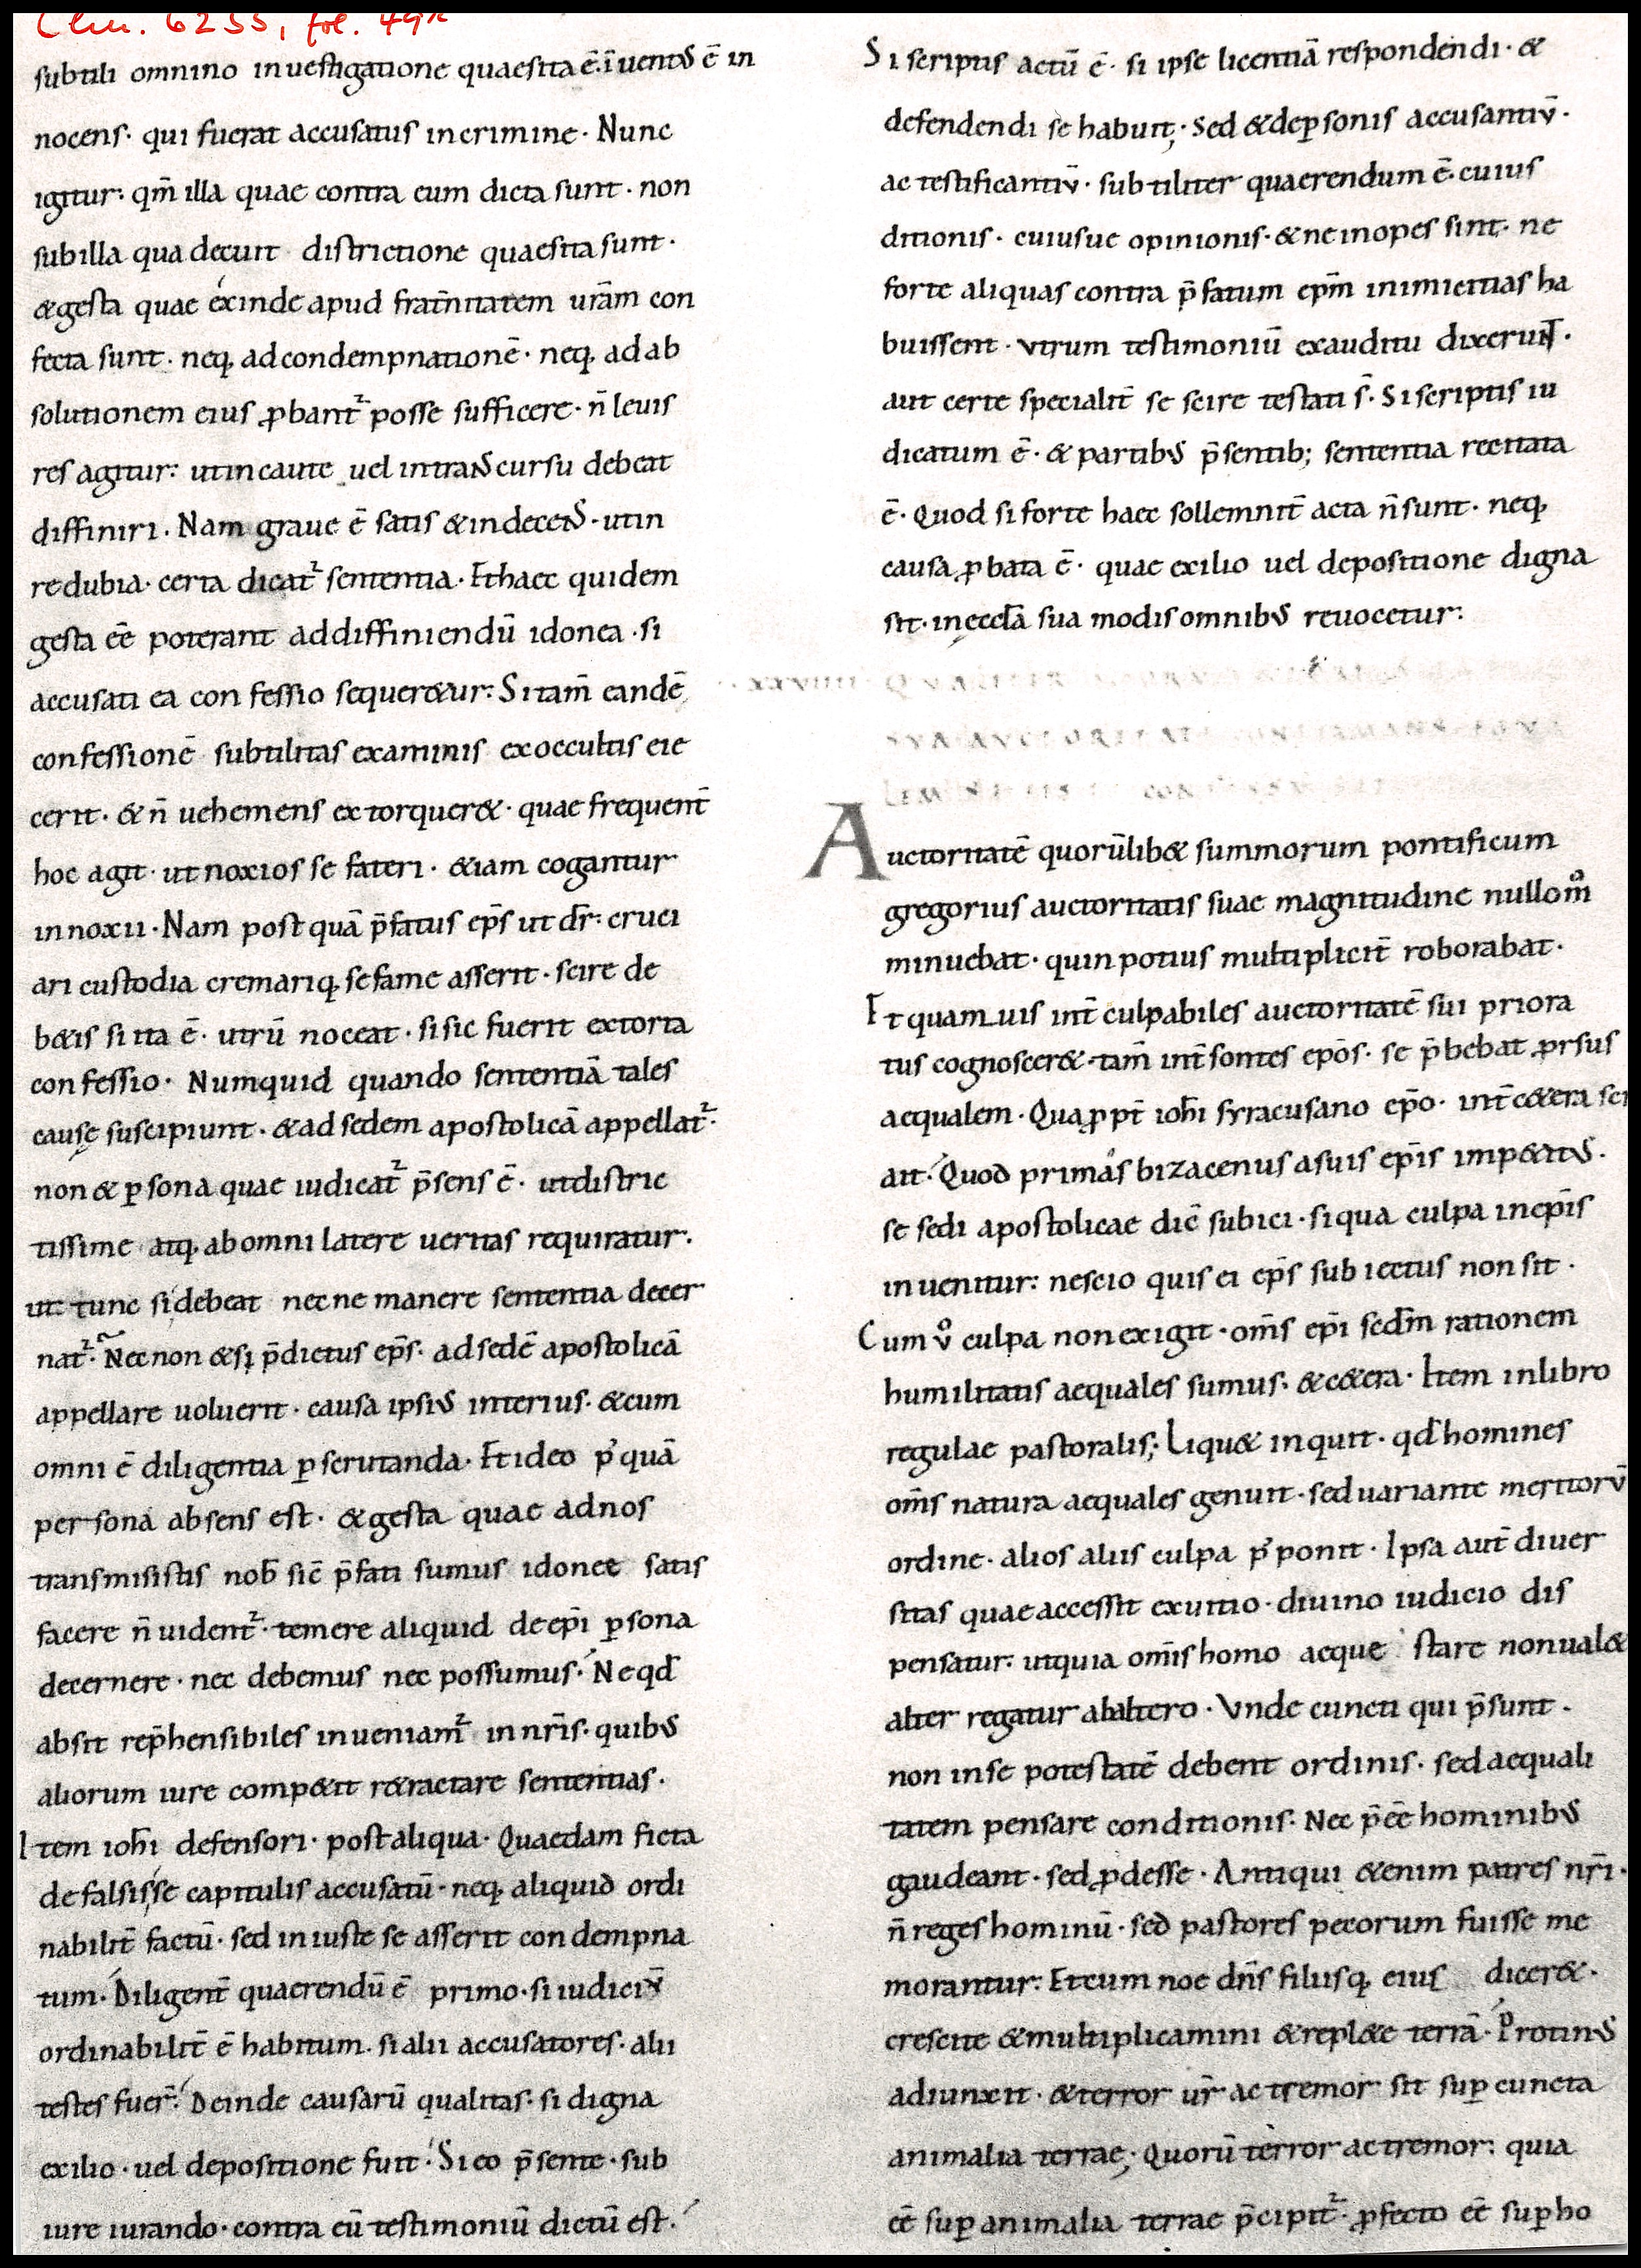 Clm. 6255, fol. 49r
subtili omnino inuestigatione quaesita ē. īuentus ē in
nocens· qui fuerat accusatus incrimine· Nunc
igitur: qm̄ illa quae contra eum dicta sunt· non
subilla qua decuit districtione quaesita sunt·
&gesta quae exinde apud frat̄nitatem ur̄am con
fecta sunt· neq; adcondempnationē· neq; adab
solutionem eius ꝓbant᷑ posse sufficere· n̄ leuis
res agitur: utincaute uel intrans cursu debeat
diffiniri· Nam graue ē satis &indecens· utin
redubia· certa dicat᷑ sententia· Ethaec quidem
gesta eē poterant addiffiniendū idonea· si
accusati ea confessio sequer&ur: Sitam̄ eandē
confessionē subtilitas examinis exoccultis eie
cerit· & n̄ uehemens extorquer&· quae frequent̄
hoc agit· ut noxios se fateri· &iam cogantur
innoxii· Nam post quā p̄fatus ep̄s ut dr̄: cruci
ari custodia cremariq; sefame asserit· scire de
b&is si ita ē· utrū noceat· si sic fuerit extorta
confessio· Numquid quando sententiā tales
causę suscipiunt· &ad sedem apostolicā appellat᷑·
non & ꝑsona quae iudicat᷑ p̄sens ē· utdistric
tissime atq; abomni latere ueritas requiratur·
ut tunc si debeat necne manere sententia decer
nat᷑· Necnon &si p̄dictus ep̄s· ad sedē apostolicā
appellare uoluerit· causa ipsius interius· &cum
omni ē diligentia ꝑscrutanda· Et ideo pꝰquā
persona absens est· &gesta quae adnos
transmisistis nob̄ sic̄ p̄fati sumus idonee satis
facere n̄ uident᷑· temere aliquid deep̄i ꝑsona
decernere· nec debemus nec possumus· Neqd̄
absit rep̄hensibiles inueniam᷑ in nr̄is· quibus
aliorum iure comp&it r&ractare sententias·
Item ioh̄i defensori· post aliqua· Quaedam ficta
defalsisse capitulis accusatū· neq; aliquid ordi
nabilit̄ factū· sed iniuste se asserit condempna
tum· Diligent̄ quaerendū ē primo· si iudiciū
ordinabilit̄ ē habitum· si alii accusatores· alii
testes fuer̄· Deinde causarū qualitas· si digna
exilio· uel depositione fuit· Si eo p̄sente· sub
iure iurando· contra eū testimoniū dictū est·
Siscriptis actū ē· si ipse licentiā respondendi· &
defendendi se habuit; Sed &deꝑsonis accusantiū·
ac testificantiū· subtiliter quaerendum ē· cuius
ditionis· cuiusue opinionis· &neinopes sint· ne
forte aliquas contra p̄fatum ep̄m inimicitias ha
buissent· utrum testimoniū exauditu dixerunt·
aut certe specialit̄ se scire testati s̄· Siscriptis iu
dicatum ē· & partibus p̄sentib; sententia recitata
ē· Quod si forte haec sollemnit̄ acta n̄ sunt· neq;
causa ꝓbata ē· quae exilio uel depositione digna
sit· inęccl̄a sua modis omnibus reuocetur:
xxviiii·
Auctoritatē quorūlib& summorum pontificum
gregorius auctoritatis suae magnitudine nullom̊
minuebat· quinpotius multiplicit̄ roborabat·
Et quamuis int̄ culpabiles auctoritatē sui priora
tus cognoscer&· tam̄ int̄ sontes ep̄os· se p̄bebat ꝓrsus
aequalem· Quaꝓpt̄ ioh̄i syracusano ep̄o· int̄ c&era scr
ait· Quod primas bizacenus asuis ep̄is imp&itus·
se sedi apostolicae dic̄ subici· siqua culpa inep̄is
inuenitur: nescio quis ei ep̄s subiectus non sit·
Cum v̊ culpa nonexigit· om̄s ep̄i sedm̄ rationem
humilitatis aequales sumus· &c&era· Item inlibro
regulae pastoralis; Liqu& inquit· qd̄ homines
om̄s natura aequales genuit· seduariante meritorū
ordine· alios aliis culpa pꝰponit· Ipsa aut̄ diuer
sitas quaeaccessit exuitio· diuino iudicio dis
pensatur: utquia om̄is homo aeque stare nonual&
alter regatur abaltero· Vnde cuncti qui p̄sunt·
non inse potestatē debent ordinis· sedaequali
tatem pensare conditionis· Nec p̄eē hominibus
gaudeant· sed ꝓdesse· Antiqui &enim patres nr̄i·
n̄ reges hominū· sed pastores pecorum fuisse me
morantur: Et cum noe dn̄s filiisq; eius dicer&·
crescite &multiplicamini &repl&e terrā· Protinus
adiunxit· &terror ur̄ ac tremor sit suꝑ cuncta
animalia terrae; Quorū terror actremor: quia
eē suꝑ animalia terrae p̄cipit᷑· ꝓfecto eē suꝑ ho